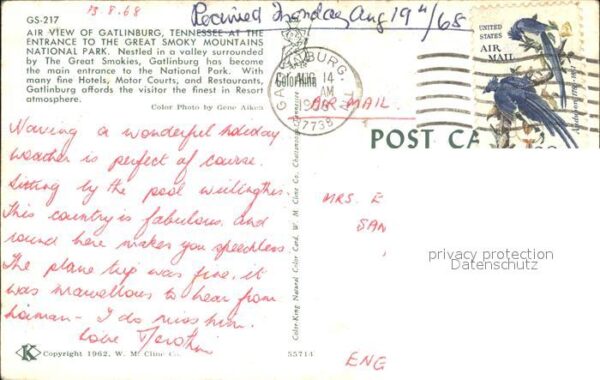 13 8.68
Received Monday Aug 19th/68
GS-217
AIR VIEW OF GATLINBURG, TENNESSEE AT THE
ENTRANCE TO THE GREAT SMOKY MOUNTAINS
NATIONAL PARK. Nestled in a valley surrounded
by The Great Smokies, Gatlinburg has become
the main entrance to the National Park. With
many fine Hotels, Motor Courts, and Restaurants,
Gatlinburg affords the visitor the finest in Resort
atmosphere.
Color Photo by Gene Aiken
GATLINBURG, TENN
AUG 14
AM
37738
AIR MAIL
UNITED
STATES
AIR
MAIL
POST CA
Having a wonderful holiday
weather is perfect of course.
Sitting by the pool writing this.
This country is fabulous and
round here makes you speechless.
The plane trip was fine, it
was marvellous to hear from
- I do miss him.
Love
Color-King Natural Color Card, W. M. Cline Co., Chattanooga, Tennessee
MRS. E
SAN
ENG
privacy protection
Datenschutz
K
Copyright 1962, W. M. Cline Co.
55714